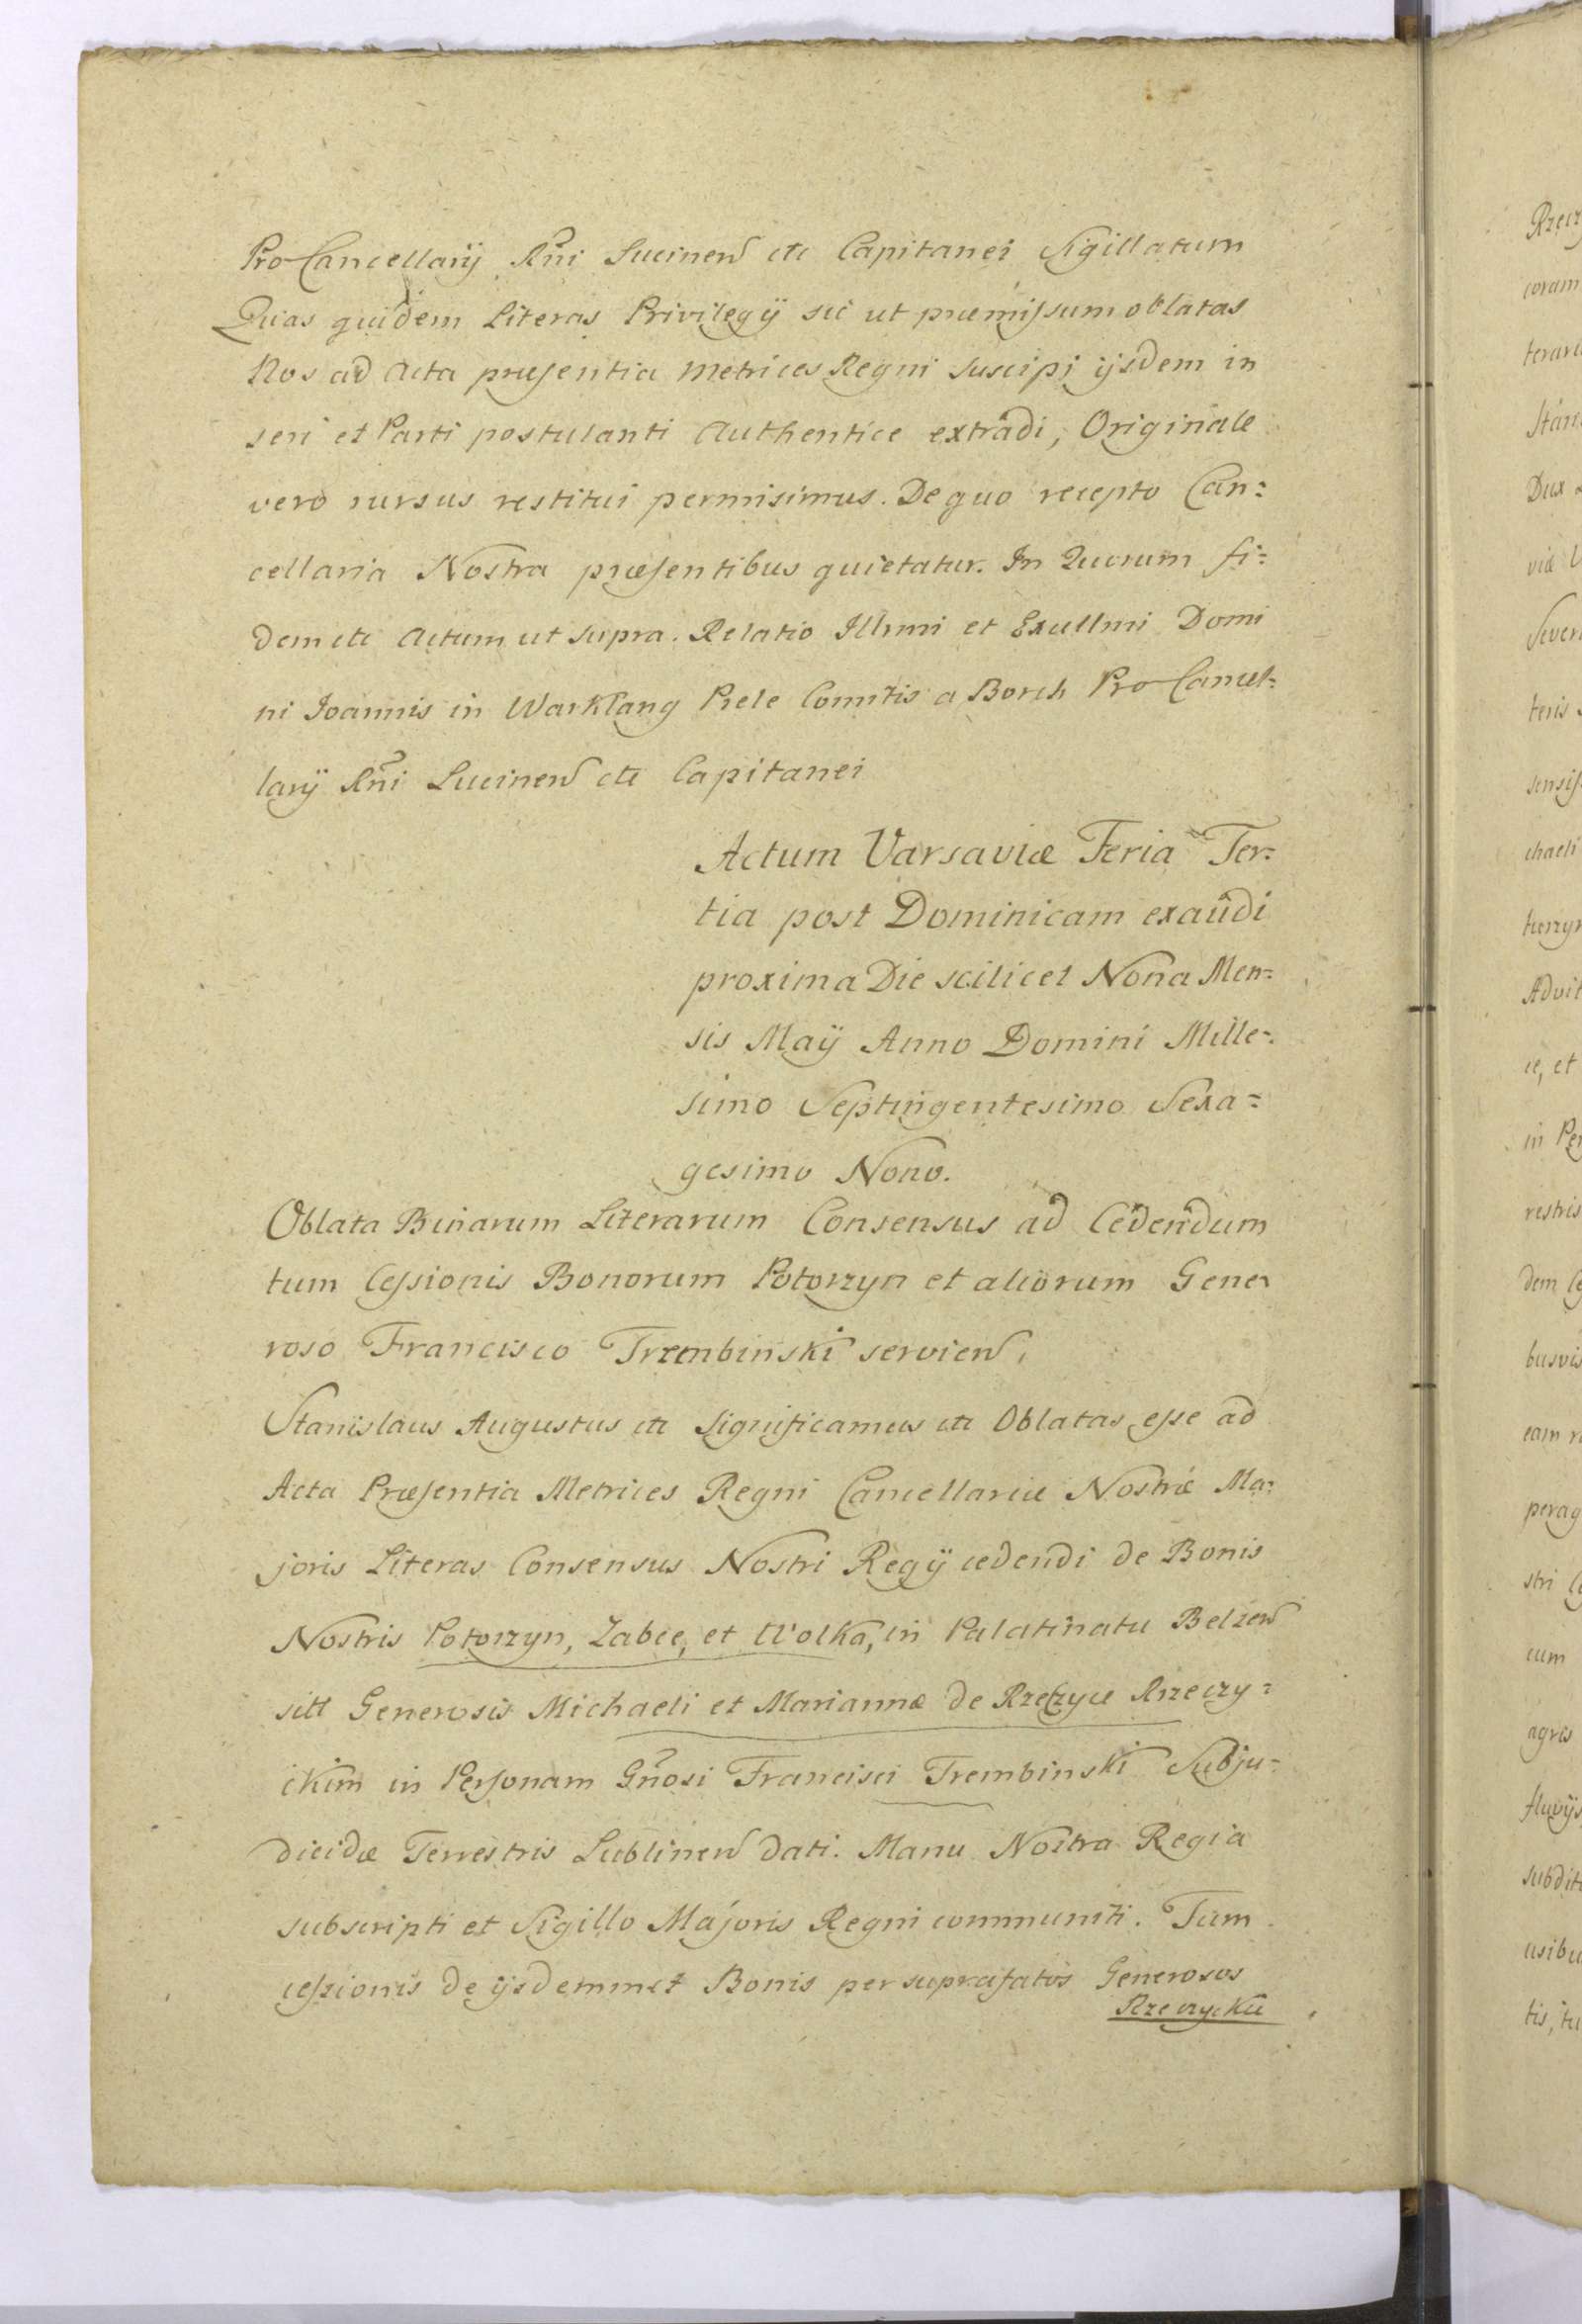 ProCancellarÿ Rni Lucinen etc Capitanei Sigillatum
Quas quidem Literas Privilegÿ sic ut præmissum oblatas
Nos ad Acta præsentia Metrices Regni suscipi ÿsdem in
seri et Parti postulanti Authentice extradi, Originale
vero rursus restitui permisimus. De quo recepto Can=
cellaria Nostra præsentibus quietatur. In Quorum fi=
dem etc Actum ut supra. Relatio Illmi et Excellmi Domi
ni Joannis in Warklang Prele Comitis a Borch ProCancel=
larÿ Rni Lucinen etc Capitanei
Actum Varsaviæ Feria Ter=
tia post Dominicam exaudi
proxima Die scilicet Nona Men=
sis Maÿ Anno Domini Mille=
simo Septingentesimo Sexa=
gesimo Nono.
Oblata Binarum Literarum Consensus ad Cedendum
tum Cessionis Bonorum Potorzyn et aliorum Gene
roso Francisco Trzembinski servien.
Stanislaus Augustus etc Significamus etc Oblatas esse ad
Acta Præsentia Metrices Regni Cancellariæ Nostræ Ma=
joris Literas Consensus Nostri Regÿ cedendi de Bonis
Nostris Potorzyn, Zabce, et Wolka, in Palatinatu Belzen
sitt Generosis Michaeli et Mariannæ de Rzeczyce Rzeczy=
ckim in Personam Gnosi Francisci Trembinski Subju=
dicidæ Terrestris Lublinen dati. Manu Nostra Regia
subscripti et Sigillo Majoris Regni communiti. Tum
cessionis de ÿsdemmet Bonis per suprafatos Generosos
Rzeczyckie